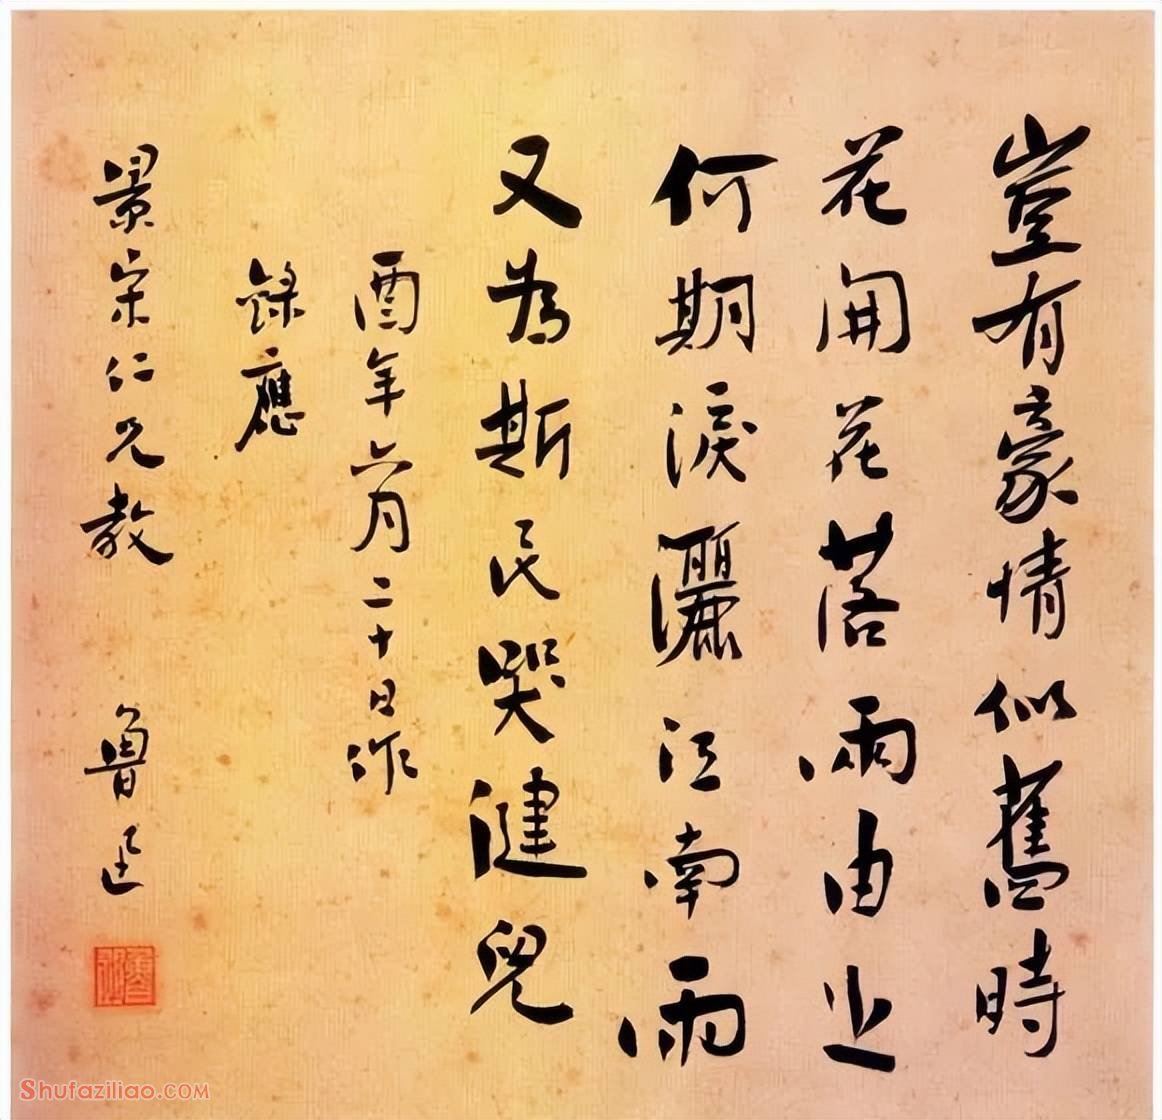 豈有豪情似舊時
花開花落兩由之
何期淚灑江南雨
又為斯民哭健兒
酉年六月二十日作
錄應
景宋仁兄教
魯迅
Shufaziliao.COM